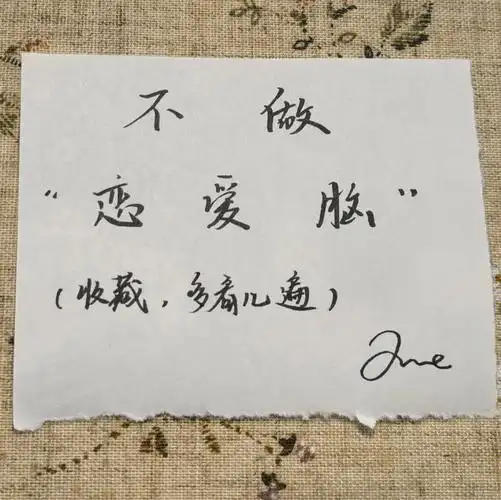 不做
“恋爱脑”
（收藏，多看几遍）
June